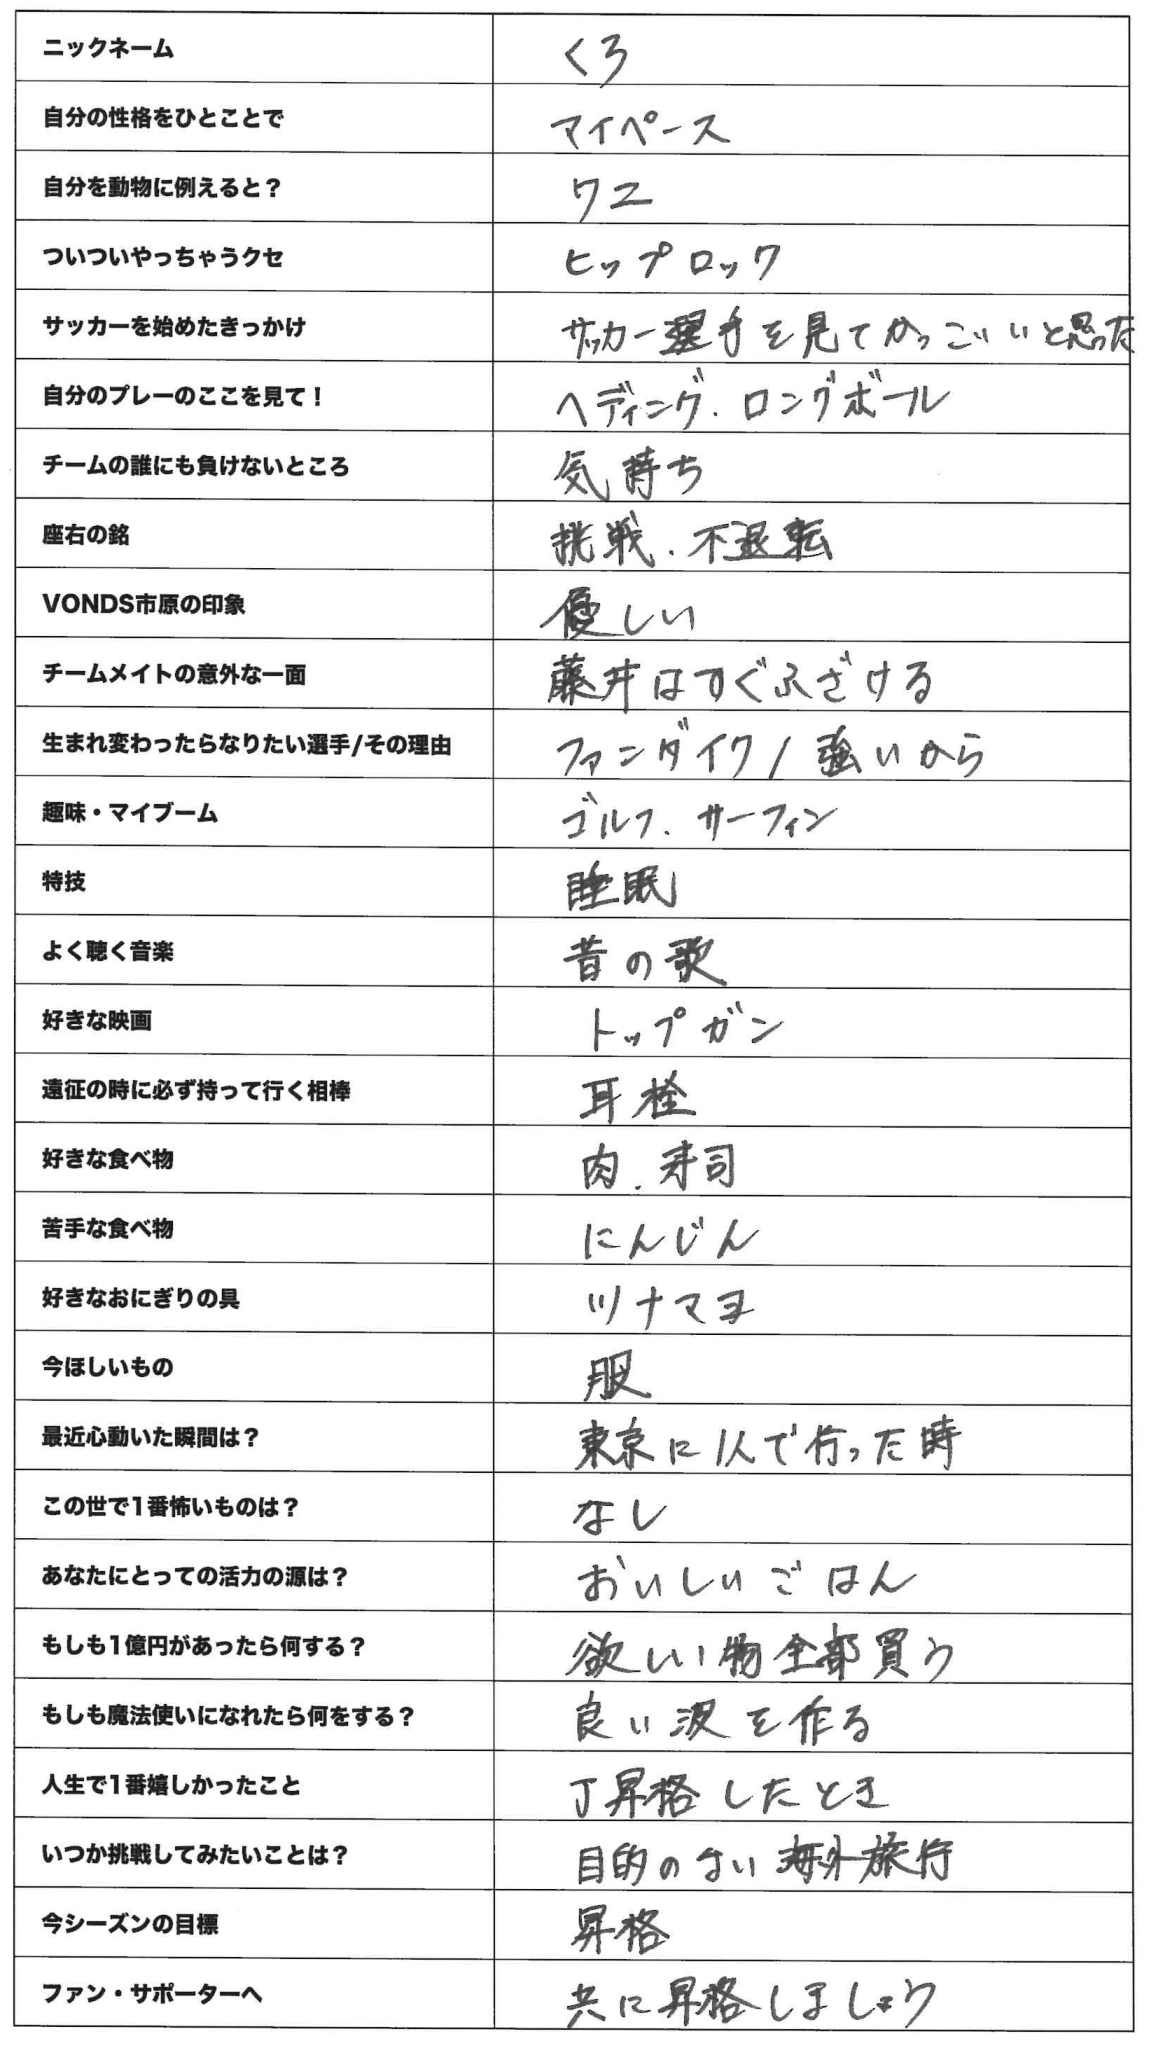 ニックネーム くろ
自分の性格をひとことで マイペース
自分を動物に例えると? ワニ
ついついやっちゃうクセ ヒップロック
サッカーを始めたきっかけ サッカー選手を見てかっこいいと思った
自分のプレーのここを見て! ヘディング.ロングボール
チームの誰にも負けないところ 気持ち
座右の銘 挑戦.不退転
VONDS市原の印象 優しい
チームメイトの意外な一面 藤井はすぐふざける
生まれ変わったらなりたい選手/その理由 ファンダイク/強いから
趣味・マイブーム ゴルフ.サーフィン
特技 睡眠
よく聴く音楽 昔の歌
好きな映画 トップガン
遠征の時に必ず持って行く相棒 耳栓
好きな食べ物 肉.寿司
苦手な食べ物 にんじん
好きなおにぎりの具 ツナマヨ
今ほしいもの 服
最近心動いた瞬間は? 東京に1人で行った時
この世で1番怖いものは? なし
あなたにとっての活力の源は? おいしいごはん
もしも1億円があったら何する? 欲しい物全部買う
もしも魔法使いになれたら何をする? 良い波を作る
人生で1番嬉しかったこと J昇格したとき
いつか挑戦してみたいことは? 目的のない海外旅行
今シーズンの目標 昇格
ファン・サポーターへ 共に昇格しましょう